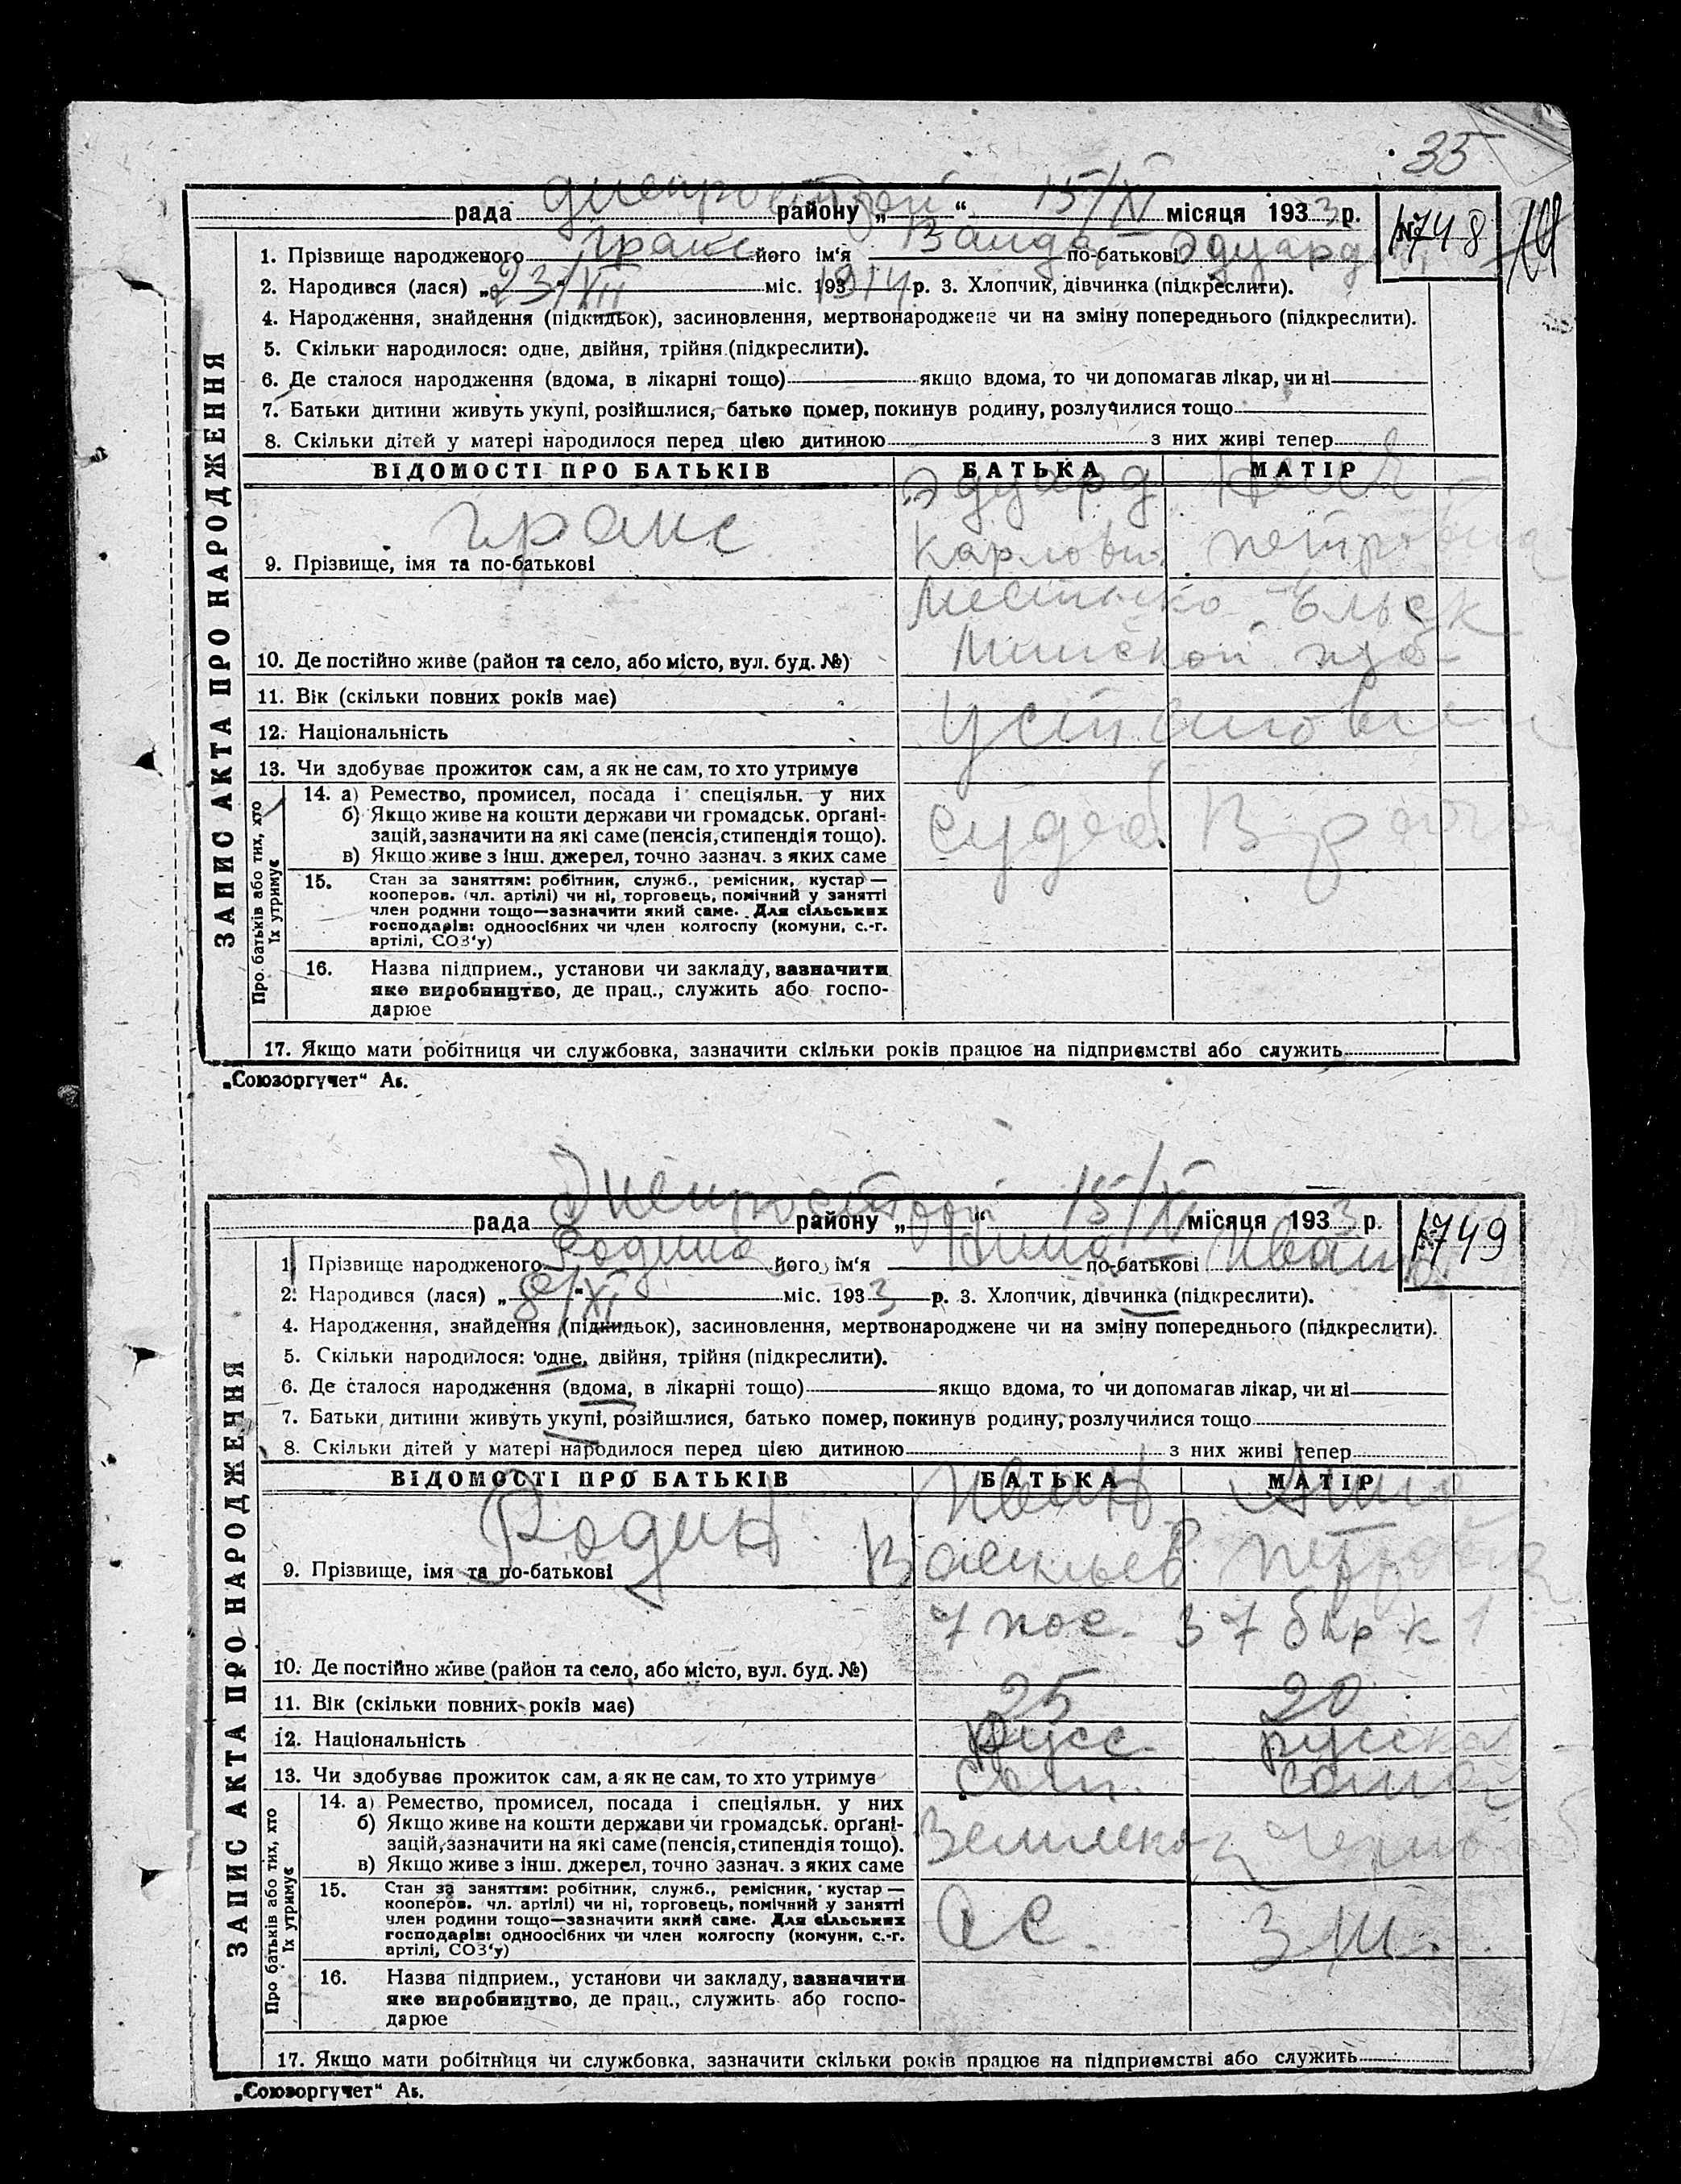 35
рада Днепрострой району „ “ 15/XI місяця 1933 р.
№ 748
1. Прізвище народженого Гракс його ім‘я Ванда по-батькові Эдуард
2. Народився (лася) „23/XII міс. 193 1914 р. 3. Хлопчик, дівчинка (підкреслити).
4. Народження, знайдення (підкидьок), засиновлення, мертвонароджене чи на зміну попереднього (підкреслити).
5. Скільки народилося: одне, двійня, трійня (підкреслити).
6. Де сталося народження (вдома, в лікарні тощо) якщо вдома, то чи допомагав лікар, чи ні
7. Батьки дитини живуть укупі, розійшлися, батько помер, покинув родину, розлучилися тощо
8. Скільки дітей у матері народилося перед цією дитиною з них живі тепер
ЗАПИС АКТА ПРО НАРОДЖЕННЯ
ВІДОМОСТІ ПРО БАТЬКІВ БАТЬКА МАТІР
Гракс Эдуард
Карлович Петровна
9. Прізвище, імя та по-батькові
Местечко Ельск
Минской губ
10. Де постійно живе (район та село, або місто, вул. буд. №)
11. Вік (скільки повних років має)
Установлен
12. Національність
13. Чи здобуває прожиток сам, а як не сам, то хто утримує
Про батьків або тих, хто їх утримує
14. а) Ремество, промисел, посада і спеціяльн. у них
б) Якщо живе на кошти держави чи громадськ. орґані-
зацій, зазначити на які саме (пенсія, стипендія тощо).
в) Якщо живе з інш. джерел, точно зазнач. з яких саме
15. Стан за заняттям: робітник, служб., ремісник, кустар —
кооперов. (чл. артілі) чи ні, торговець, помічний у занятті
член родини тощо—зазначити який саме. Для сільських
господарів: одноосібних чи член колгоспу (комуни, с.-г.
артілі, СОЗ‘у)
16. Назва підприєм., установи чи закладу, зазначити
яке виробництво, де прац., служить або госпо-
дарює
17. Якщо мати робітниця чи службовка, зазначити скільки років працює на підприємстві або служить
„Союзоргучет“ Аз.
рада Днепрострой району „ “ 15/XI місяця 1933 р.
№ 749
1. Прізвище народженого Родина його ім‘я по-батькові Иван
2. Народився (лася) „8/XI міс. 1933 р. 3. Хлопчик, дівчинка (підкреслити).
4. Народження, знайдення (підкидьок), засиновлення, мертвонароджене чи на зміну попереднього (підкреслити).
5. Скільки народилося: одне, двійня, трійня (підкреслити).
6. Де сталося народження (вдома, в лікарні тощо) якщо вдома, то чи допомагав лікар, чи ні
7. Батьки дитини живуть укупі, розійшлися, батько помер, покинув родину, розлучилися тощо
8. Скільки дітей у матері народилося перед цією дитиною з них живі тепер
ЗАПИС АКТА ПРО НАРОДЖЕННЯ
ВІДОМОСТІ ПРО БАТЬКІВ БАТЬКА МАТІР
Родин Иван Анна
Васильев Петровна
9. Прізвище, імя та по-батькові
7 пос. 37 бар к 1
10. Де постійно живе (район та село, або місто, вул. буд. №)
11. Вік (скільки повних років має) 25 20
12. Національність русс русская
13. Чи здобуває прожиток сам, а як не сам, то хто утримує сам. сама
Про батьків або тих, хто їх утримує
14. а) Ремество, промисел, посада і спеціяльн. у них
б) Якщо живе на кошти держави чи громадськ. орґані-
зацій, зазначити на які саме (пенсія, стипендія тощо).
в) Якщо живе з інш. джерел, точно зазнач. з яких саме
Землекоп
15. Стан за заняттям: робітник, служб., ремісник, кустар —
кооперов. чл. артілі) чи ні, торговець, помічний у занятті
член родини тощо—зазначити який саме. Для сільських
господарів: одноосібних чи член колгоспу (комуни, с.-г.
артілі, СОЗ‘у)
16. Назва підприєм., установи чи закладу, зазначити
яке виробництво, де прац., служить або госпо-
дарює
17. Якщо мати робітниця чи службовка, зазначити скільки років працює на підприємстві або служить
„Союзоргучет“ Аз.